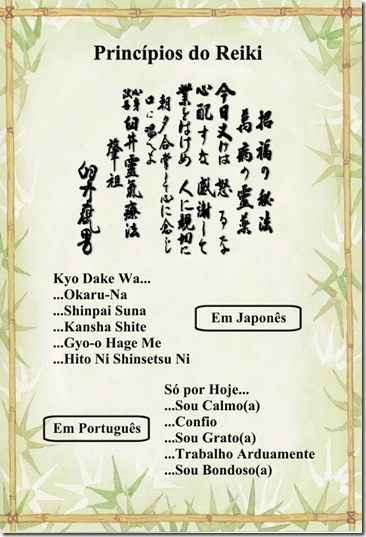 Princípios do Reiki
招福の秘法
萬病の霊薬
今日丈けは 怒るな
心配すな 感謝して
業をはげめ 人に親切に
朝夕合掌して心に念じ
口に唱へよ
心身
改善
臼井靈氣療法
肇祖
臼井甕男
Kyo Dake Wa...
...Okaru-Na
...Shinpai Suna
...Kansha Shite
...Gyo-o Hage Me
...Hito Ni Shinsetsu Ni
Em Japonês
Só por Hoje...
...Sou Calmo(a)
...Confio
...Sou Grato(a)
...Trabalho Arduamente
...Sou Bondoso(a)
Em Português